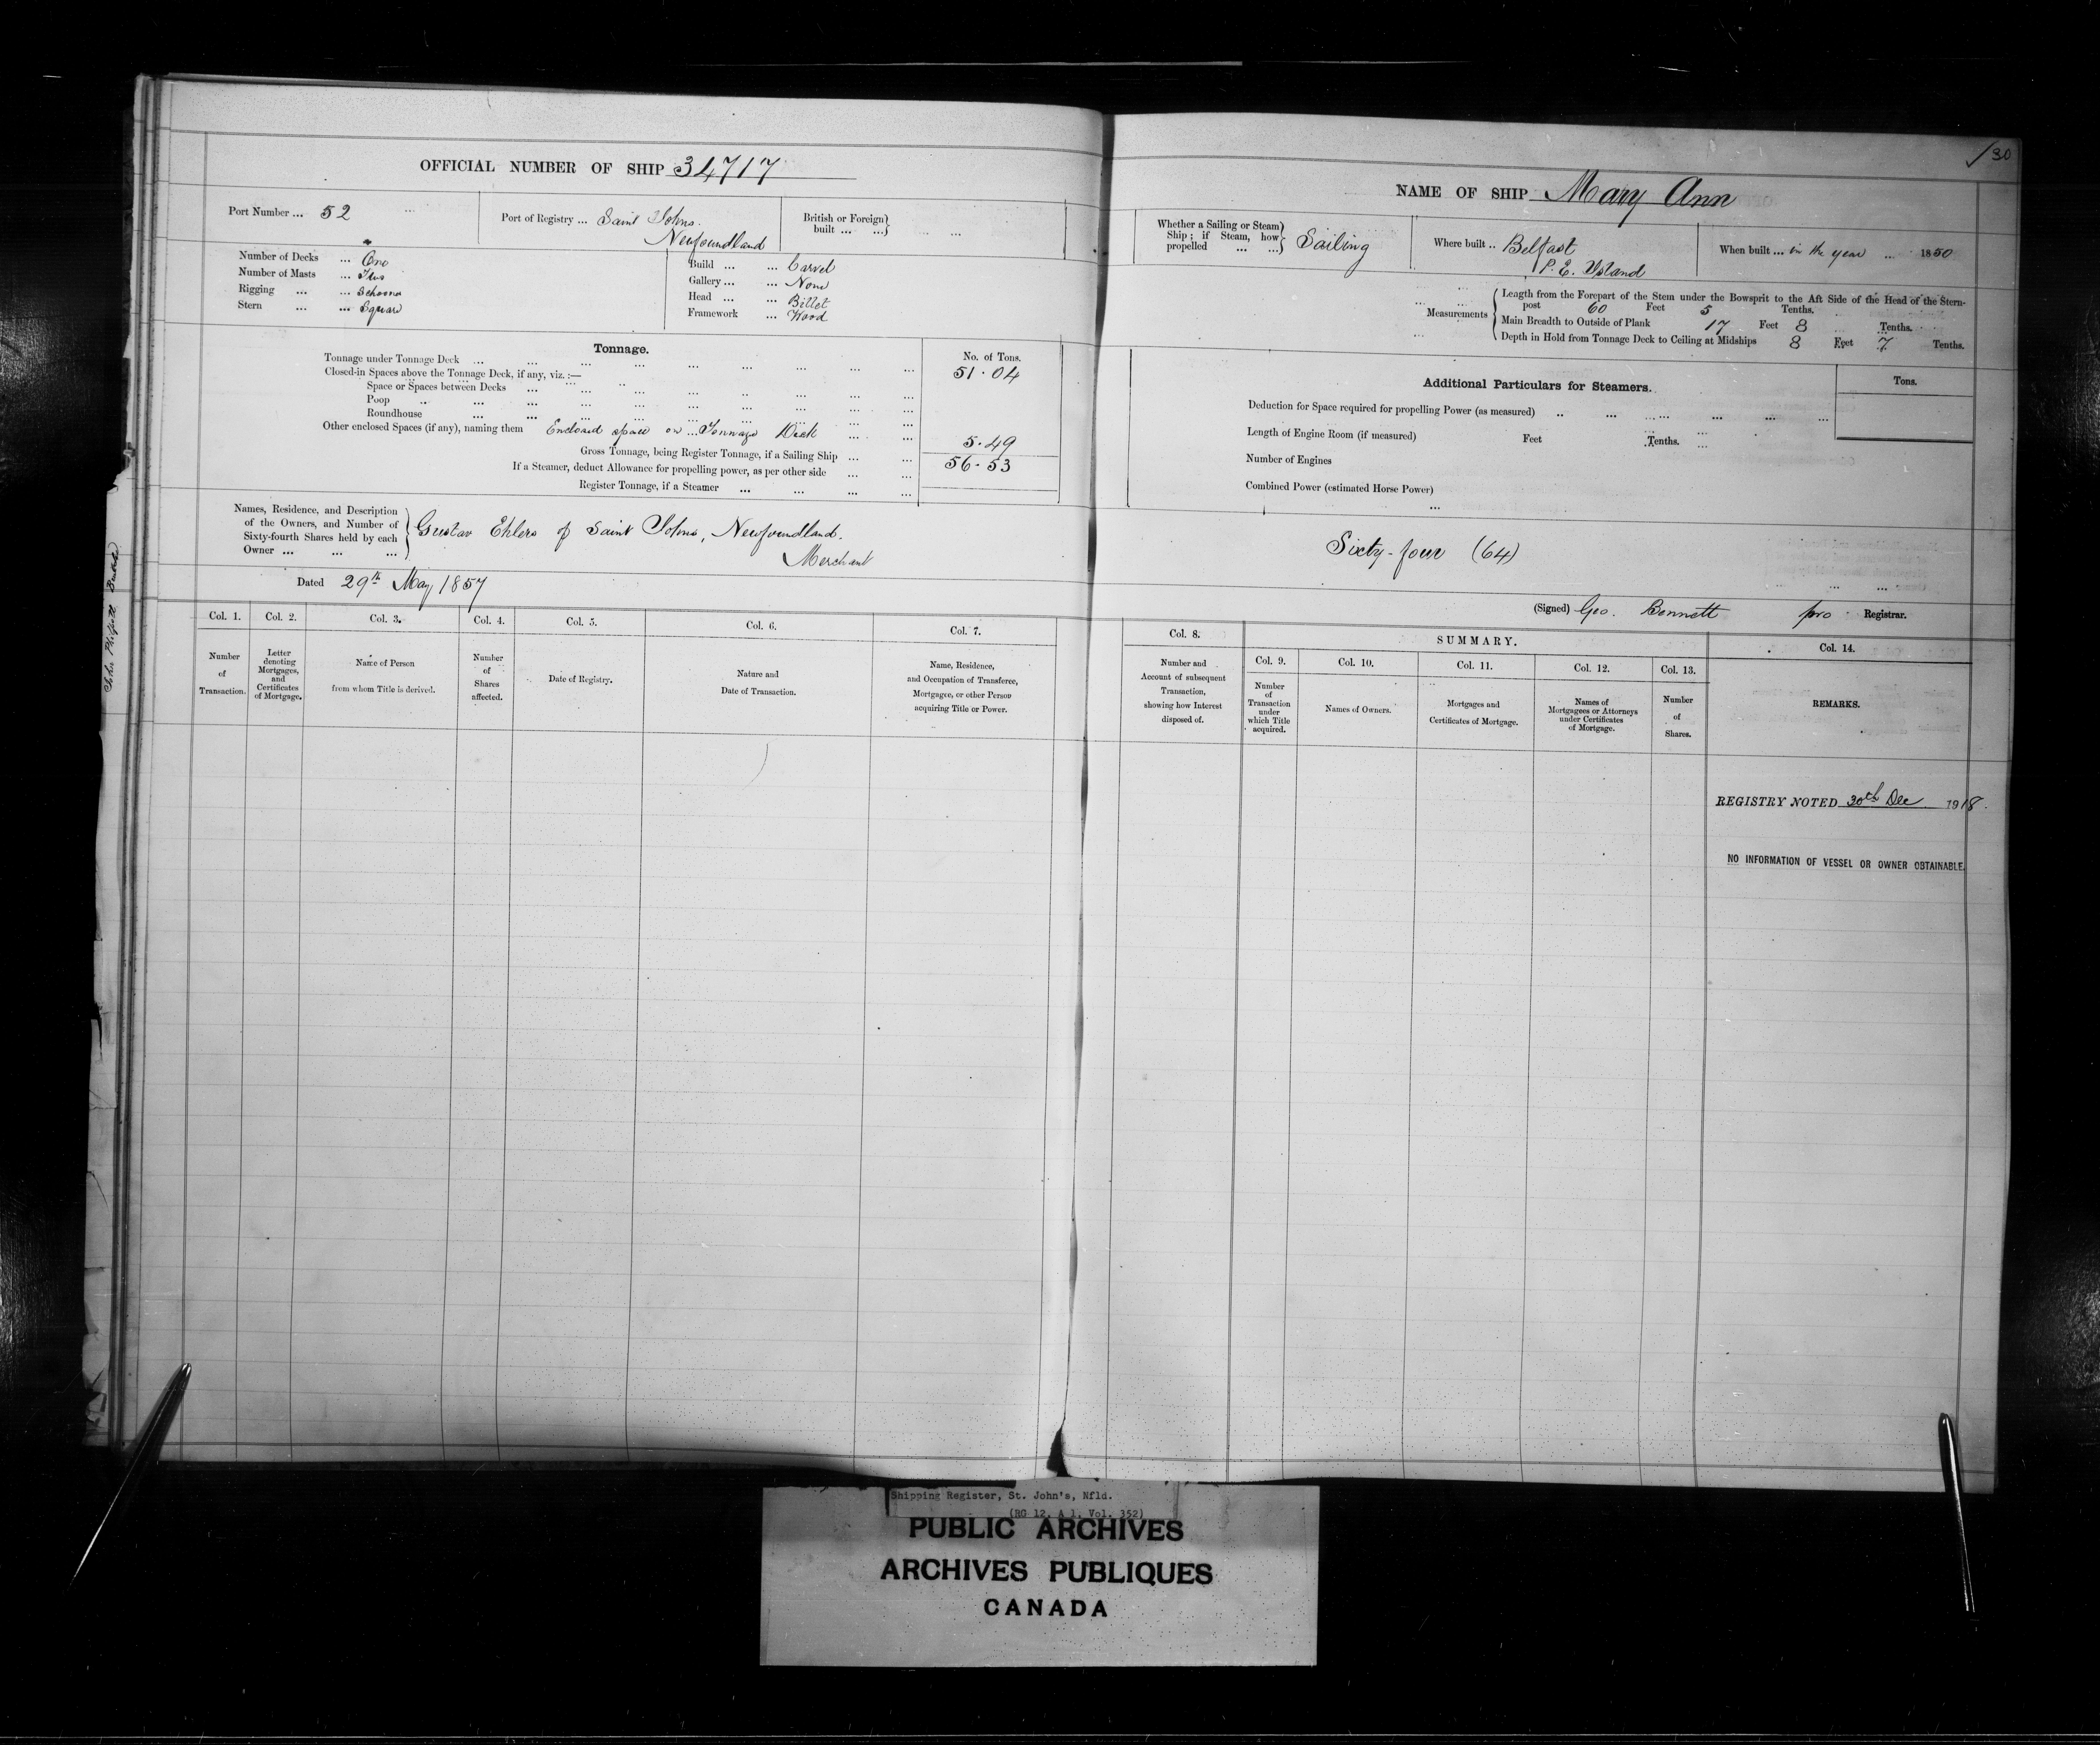 OFFICIAL NUMBER OF SHIP 34717
Port Number ... 52
Port of Registry ... Saint Johns.
Newfoundland
British or Foreign
built ... ...
Number of Decks ... One
Number of Masts ... Two
Rigging ... ... Schooner
Stern ... ... Square
Build ... ... Carvel
Gallery ... ... None
Head ... ... Billet
Framework ... Wood
Tonnage.
No. of Tons.
Tonnage under Tonnage Deck ... 51.04
Closed-in Spaces above the Tonnage Deck, if any, viz.:—
Space or Spaces between Decks
Poop
Roundhouse
Other enclosed Spaces (if any), naming them Enclosed space on Tonnage Deck 5.49
Gross Tonnage, being Register Tonnage, if a Sailing Ship ... 56.53
If a Steamer, deduct Allowance for propelling power, as per other side
Register Tonnage, if a Steamer
Names, Residence, and Description
of the Owners, and Number of
Sixty-fourth Shares held by each
Owner ... ... ...
Gustav Ehlers of Saint Johns, Newfoundland.
Merchant
Dated 29th May 1857
Col. 1.
Number
of
Transaction.
Col. 2.
Letter
denoting
Mortgages,
and
Certificates
of Mortgage.
Col. 3.
Name of Person
from whom Title is derived.
Col. 4.
Number
of
Shares
affected.
Col. 5.
Date of Registry.
Col. 6.
Nature and
Date of Transaction.
Col. 7.
Name, Residence,
and Occupation of Transferee,
Mortgagee, or other Person
acquiring Title or Power.
130
NAME OF SHIP Mary Ann
Whether a Sailing or Steam
Ship; if Steam, how
propelled ... ...
Sailing
Where built .. Belfast
P. E. Island
When built ... in the year ... 1850
Measurements
Length from the Forepart of the Stem under the Bowsprit to the Aft Side of the Head of the Stern-
post 60 Feet 5 Tenths.
Main Breadth to Outside of Plank 17 Feet 8 Tenths.
Depth in Hold from Tonnage Deck to Ceiling at Midships 8 Feet 7 Tenths.
Additional Particulars for Steamers.
Tons.
Deduction for Space required for propelling Power (as measured)
Length of Engine Room (if measured) Feet Tenths.
Number of Engines
Combined Power (estimated Horse Power)
Sixty-four (64)
(Signed) Geo. Bennett pro Registrar.
Col. 8.
Number and
Account of subsequent
Transaction,
showing how Interest
disposed of.
SUMMARY.
Col. 9.
Number
of
Transaction
under
which Title
acquired.
Col. 10.
Names of Owners.
Col. 11.
Mortgages and
Certificates of Mortgage.
Col. 12.
Names of
Mortgagees or Attorneys
under Certificates
of Mortgage.
Col. 13.
Number
of
Shares.
Col. 14.
REMARKS.
REGISTRY NOTED 30th Dec 1918.
NO INFORMATION OF VESSEL OR OWNER OBTAINABLE.
Shipping Register, St. John's, Nfld.
(RG 12, A 1, Vol. 352)
PUBLIC ARCHIVES
ARCHIVES PUBLIQUES
CANADA